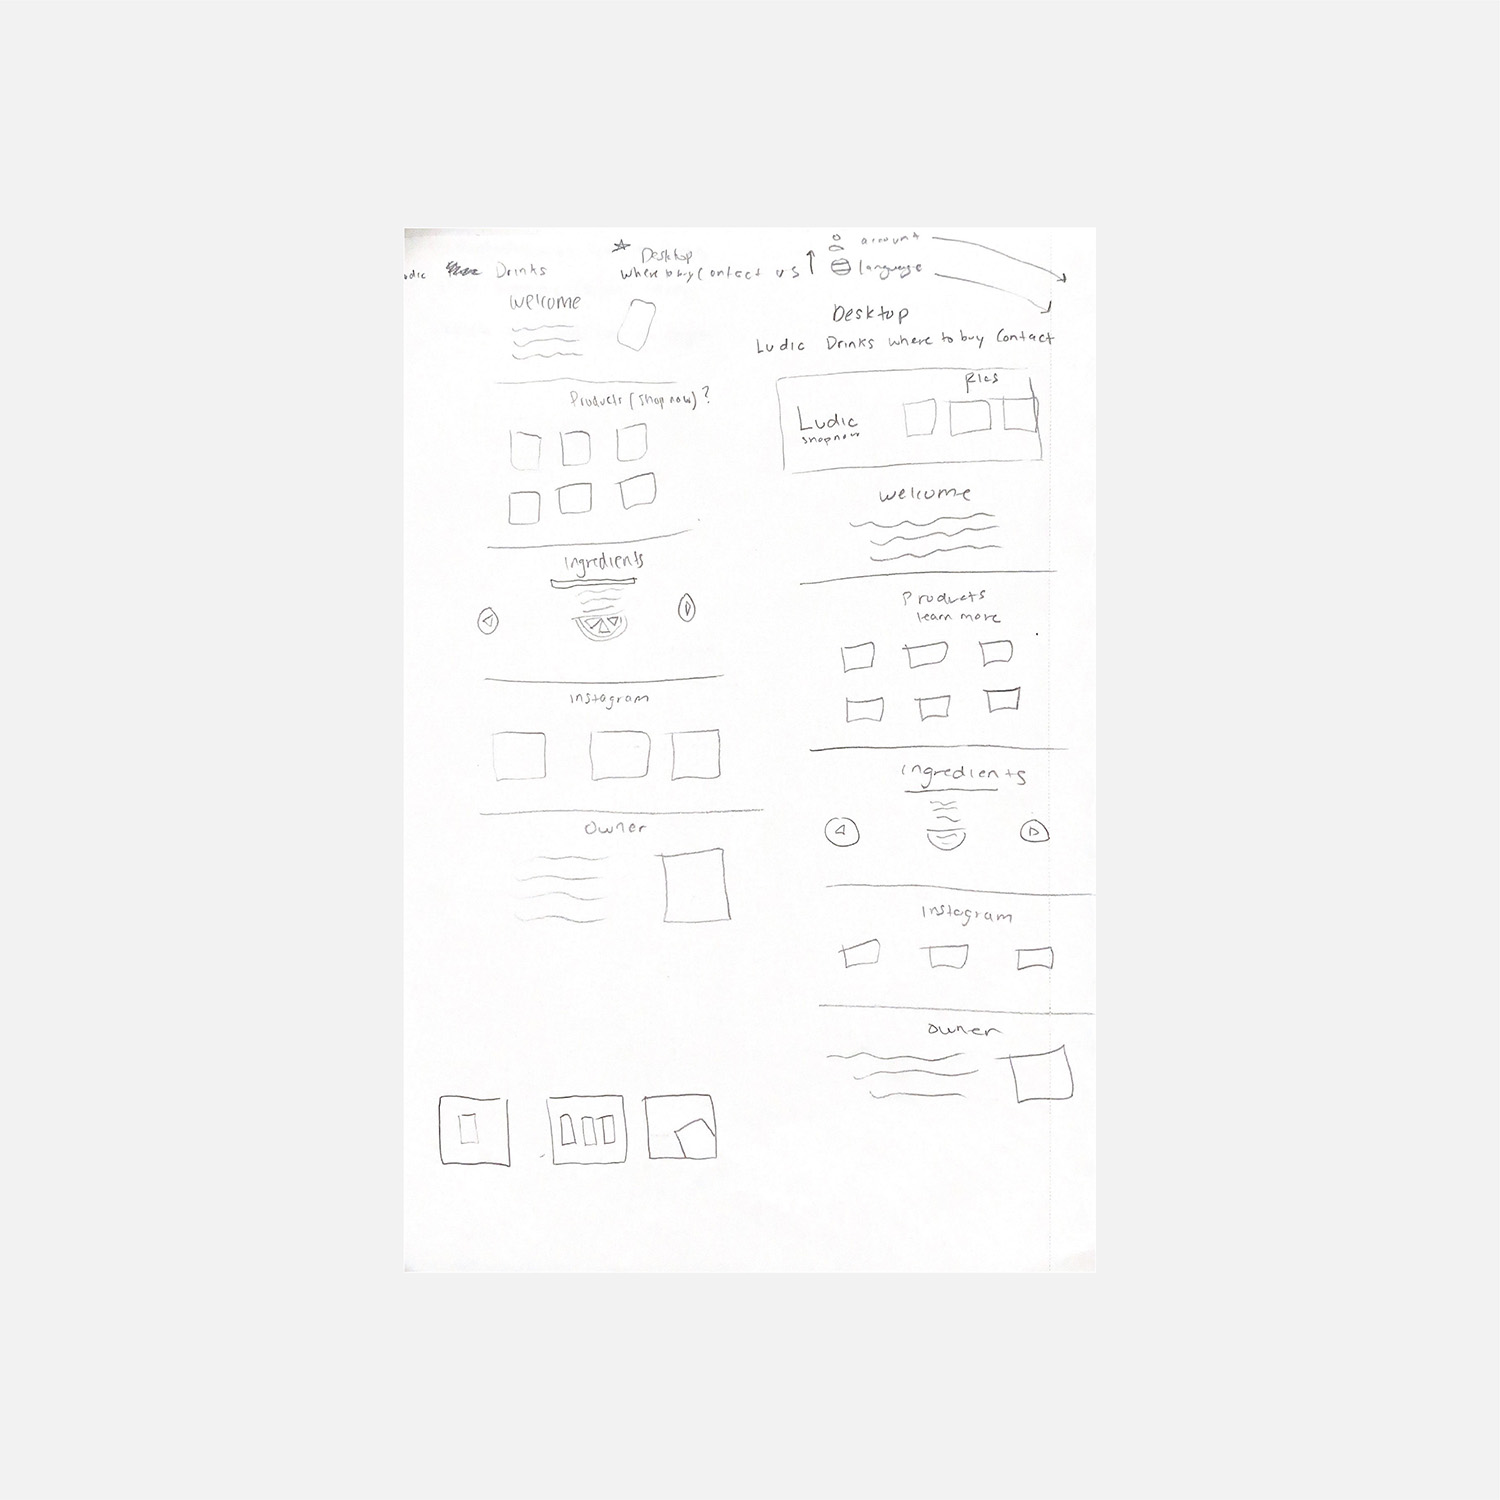 Desktop
Drinks
where buy Contact us
account
language
welcome
Products (shop now)?
Ingredients
Instagram
Owner
Desktop
Ludic Drinks where to buy Contact
Ludic
shop now
welcome
Products
learn more
Ingredients
Instagram
owner